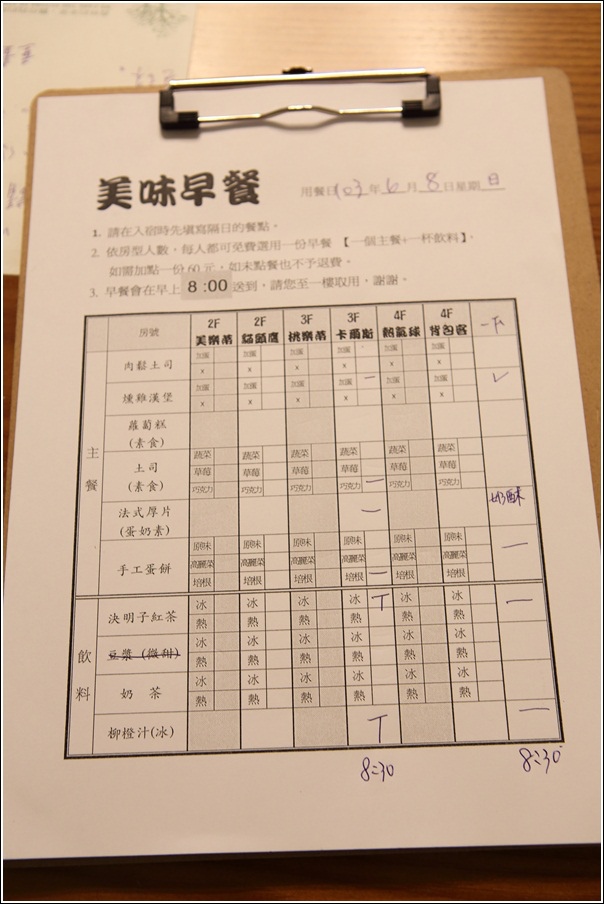 美味早餐
用餐日103年6月8日星期日
1. 請在入宿時先填寫隔日的餐點。
2. 依房型人數，每人都可免費選用一份早餐 【一個主餐+一杯飲料】，
如需加點一份60元，如未點餐也不予退費。
3. 早餐會在早上 8:00 送到，請您至一樓取用，謝謝。
房號 2F 2F 3F 3F 4F 4F
美樂蒂 貓頭鷹 桃樂蒂 卡爾斯 熱氣球 背包客
主餐
肉鬆土司 加蛋 加蛋 加蛋 加蛋 加蛋 加蛋
x x x x x x
燻雞漢堡 加蛋 加蛋 加蛋 加蛋 一 加蛋 加蛋 ✓
x x x x x x
蘿蔔糕
(素食)
土司 蔬菜 蔬菜 蔬菜 蔬菜 蔬菜 蔬菜
草莓 草莓 草莓 草莓 草莓 草莓
(素食) 巧克力 巧克力 巧克力 巧克力 一 巧克力 巧克力
法式厚片 一 奶酥
(蛋奶素)
手工蛋餅 原味 原味 原味 原味 原味 原味 一
高麗菜 高麗菜 高麗菜 高麗菜 高麗菜 高麗菜
培根 培根 培根 培根 一 培根 培根
飲料
決明子紅茶 冰 冰 冰 冰 T 冰 冰 一
熱 熱 熱 熱 熱 熱
豆漿 (微甜) 冰 冰 冰 冰 冰 冰
熱 熱 熱 熱 熱 熱
奶 茶 冰 冰 冰 冰 冰 冰
熱 熱 熱 熱 熱 熱
柳橙汁(冰) T 一
8:30 8:30